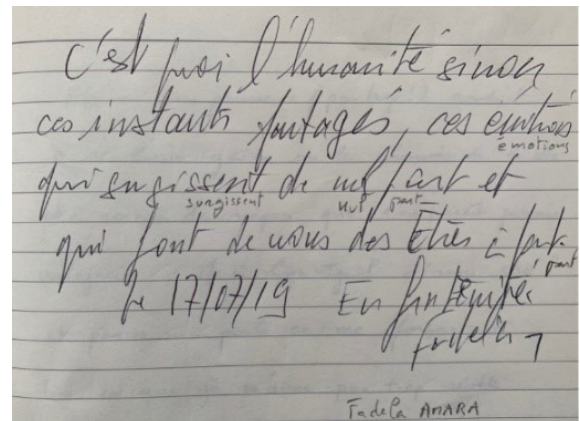 C'est quoi l'humanité sinon
ces instants partagés, ces émotions
émotions
qui surgissent de nul part et
surgissent nul part
qui font de nous des Êtres à part.
part
Le 17/07/19 En fraternité
Fadela
Fadela AMARA